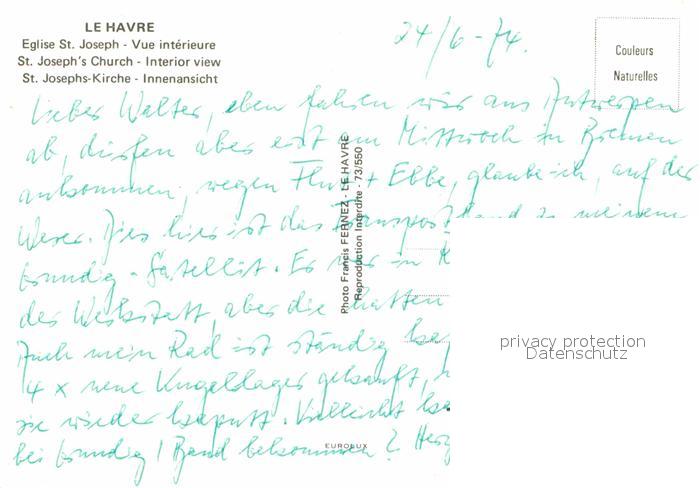 LE HAVRE
Eglise St. Joseph - Vue intérieure
St. Joseph's Church - Interior view
St. Josephs-Kirche - Innenansicht
24/6-74.
Couleurs
Naturelles
Lieber Walter, eben fahren wir aus Antwerpen
ab, dürfen aber erst am Mittwoch in Bremen
ankommen, wegen Flut + Ebbe, glaube ich, auf der
Weser. Dies hier ist das Transportband zu meinem
Grundig-Satellit. Er war in
der Werkstatt, aber die hatten
Auch mein Rad ist ständig
4 x neue Kugellager gekauft,
sie wieder kaputt. Vielleicht
bei Grundig 1 Band bekommen?
Photo Francis FERNEZ - LE HAVRE
Reproduction Interdite - 73/550
EUROLUX
privacy protection
Datenschutz